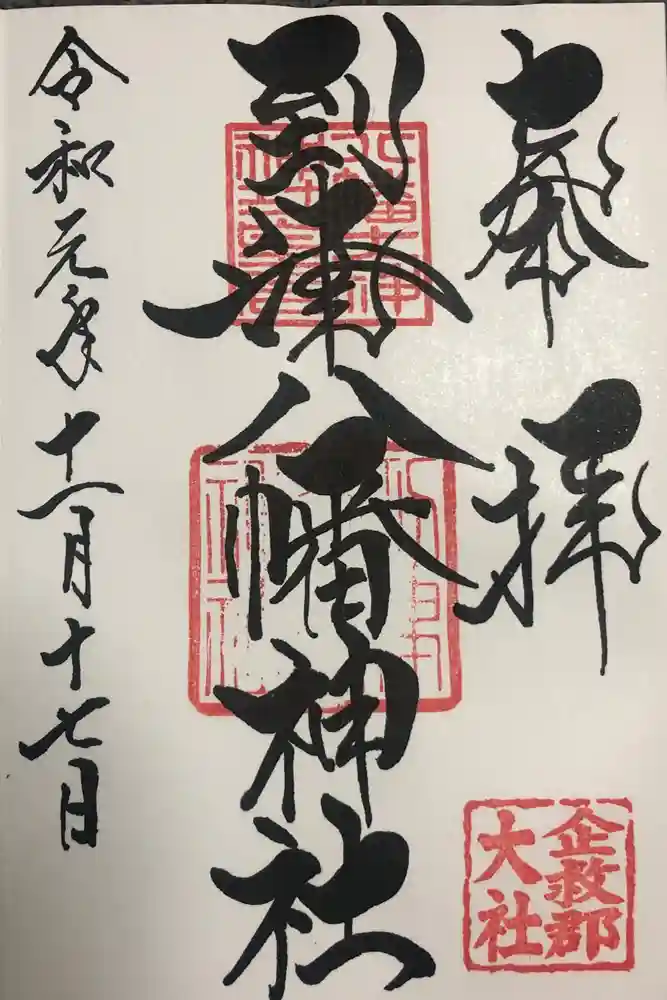 奉拝
企救郡
大社
到津八幡神社
令和元年十一月十七日